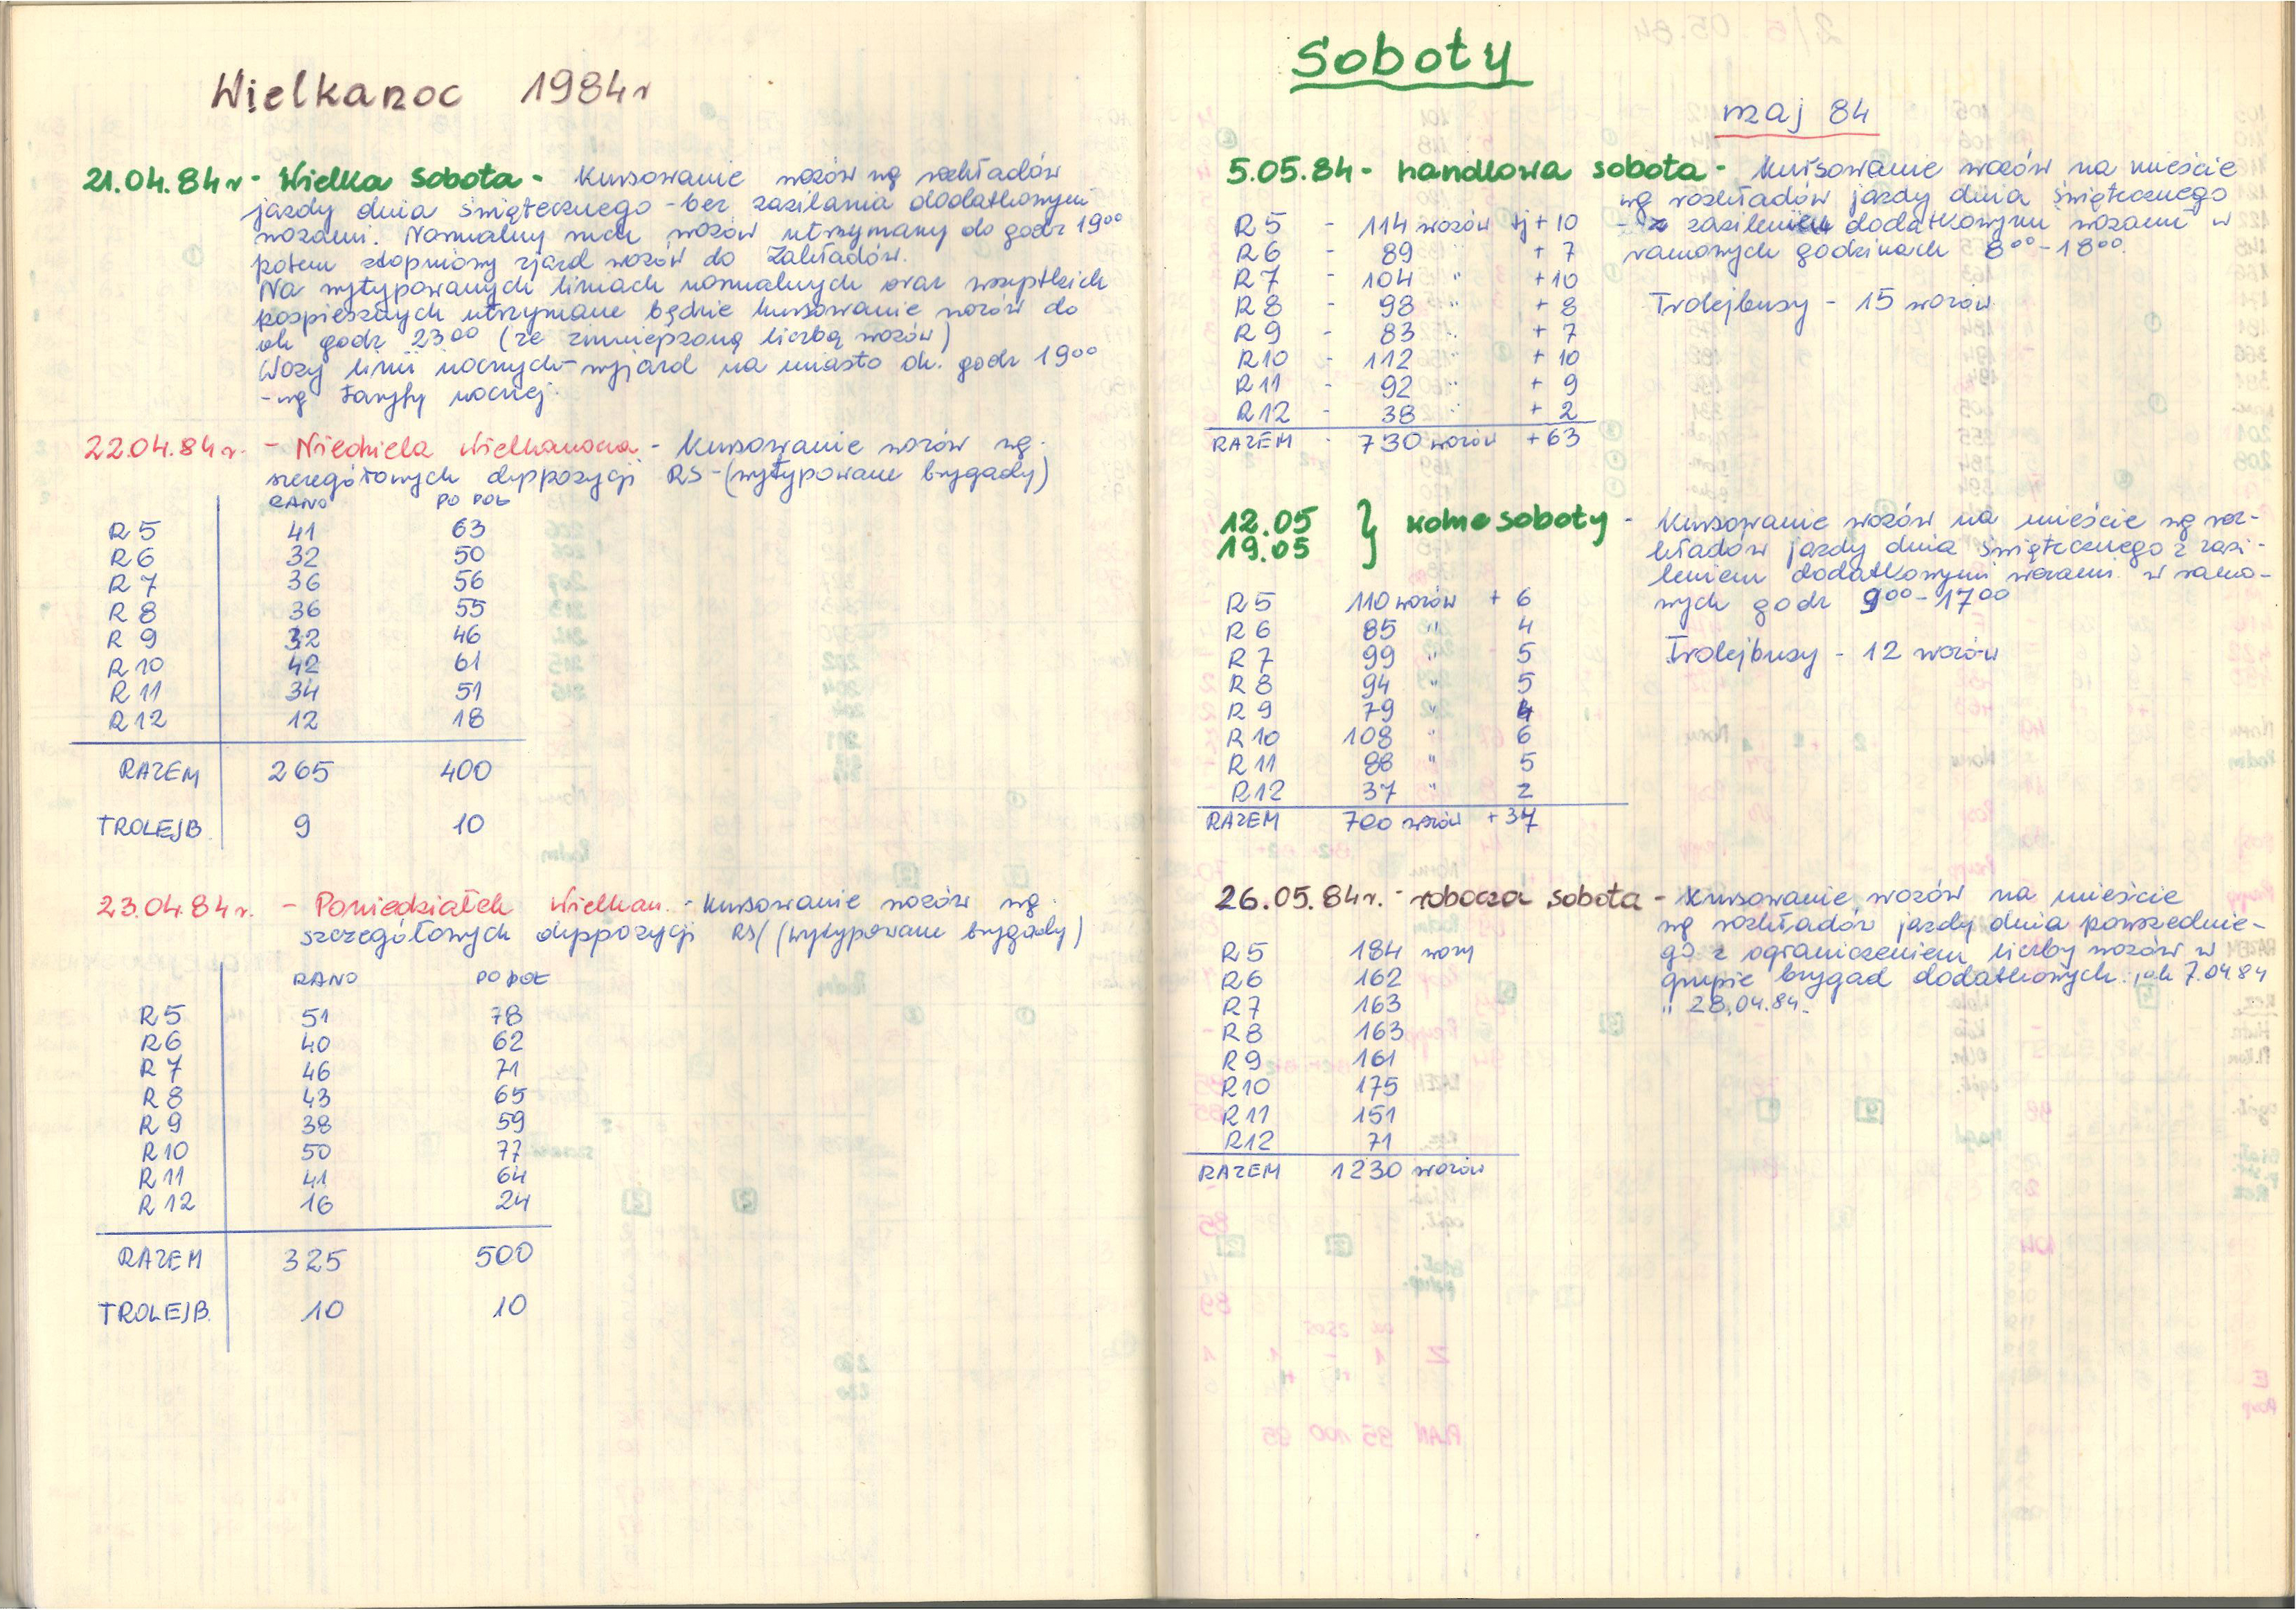 Wielkanoc 1984r
21.04.84r - Wielka Sobota - Kursowanie wozów wg rozkładów
jazdy dnia świątecznego - bez zasilania dodatkowymi
wozami. Normalny ruch wozów utrzymany do godz 19⁰⁰
potem stopniowy zjazd wozów do Zakładów.
Na wytypowanych liniach normalnych oraz wszystkich
pospiesznych utrzymane będzie kursowanie wozów do
ok godz 23⁰⁰ (ze zmniejszoną liczbą wozów)
Wozy linii nocnych - wyjazd na miasto ok. godz 19⁰⁰
- wg taryfy nocnej.
22.04.84r. - Niedziela Wielkanocna - Kursowanie wozów wg.
szczegółowych dyspozycji RS - (wytypowane brygady)
RANO PO POŁ
R5 41 63
R6 32 50
R7 36 56
R8 36 55
R9 32 46
R10 42 61
R11 34 51
R12 12 18
RAZEM 265 400
TROLEJB. 9 10
23.04.84r. - Poniedziałek Wielkan. - Kursowanie wozów wg.
szczegółowych dyspozycji RS/ (wytypowane brygady)
RANO PO POŁ
R5 51 78
R6 40 62
R7 46 71
R8 43 65
R9 38 59
R10 50 77
R11 41 64
R12 16 24
RAZEM 325 500
TROLEJB. 10 10
Soboty
maj 84
5.05.84 - handlowa sobota - Kursowanie wozów na mieście
wg rozkładów jazdy dnia świątecznego
- z zasileniem dodatkowymi wozami w
ramowych godzinach 8⁰⁰-18⁰⁰.
Trolejbusy - 15 wozów
R5 - 114 wozów tj + 10
R6 - 89 + 7
R7 - 104 " + 10
R8 - 98 " + 8
R9 - 83 " + 7
R10 - 112 " + 10
R11 - 92 " + 9
R12 - 38 " + 2
RAZEM - 730 wozów + 63
12.05
19.05 } wolne soboty - Kursowanie wozów na mieście wg roz-
kładów jazdy dnia świątecznego z zasi-
leniem dodatkowymi wozami w ramo-
wych godz 9⁰⁰-17⁰⁰
Trolejbusy - 12 wozów
R5 110 wozów + 6
R6 85 " 4
R7 99 " 5
R8 94 " 5
R9 79 " 4
R10 108 " 6
R11 88 " 5
R12 37 " 2
RAZEM 700 wozów + 37
26.05.84r. - robocza sobota - Kursowanie wozów na mieście
wg rozkładów jazdy dnia powszednie-
go z ograniczeniem liczby wozów w
grupie brygad dodatkowych jak 7.04 84
" 28.04.84.
R5 184 wozy
R6 162
R7 163
R8 163
R9 161
R10 175
R11 151
R12 71
RAZEM 1230 wozów